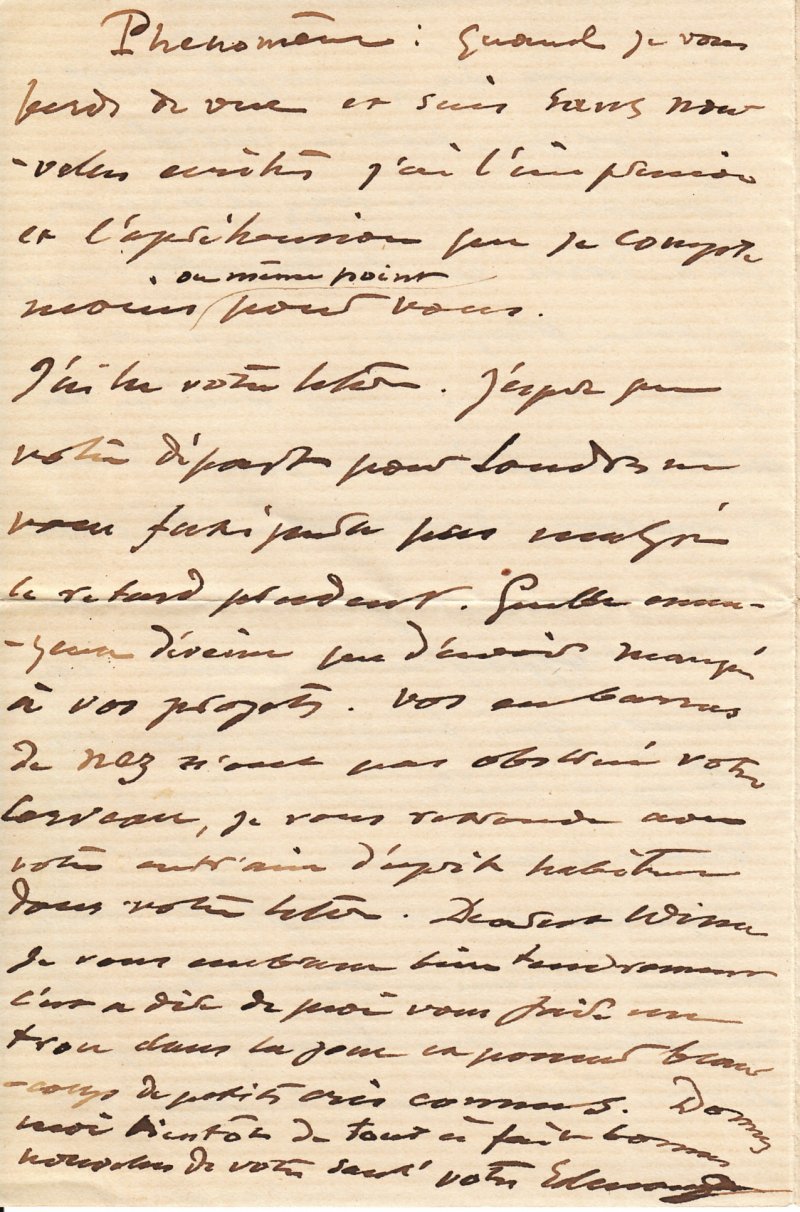 Phenomène : Quand je vous
perds de vue et suis sans nou-
-velles écrites j'ai l'impression
et l'apréhension que je compte
ou même point
moins pour vous.
J'ai lu votre lettre. J'espère que
votre départ pour Londres ne
vous fatiguera pas malgré
le retard prudent. Quelle ennu-
-yeuse déveine que d'avoir manqué
à vos projets. Vos embarras
de nez n'ont pas obstrué votre
cerveau, je vous retrouve avec
votre entrain d'esprit habituel
dans votre lettre. Dearest Winn
je vous embrasse bien tendrement
c'est a dire de quoi vous faire un
trou dans la joue et pousser beau-
-coup de petits cris connus. Donnez
moi bientôt de tout à fait bonnes
nouvelles de votre santé votre Edmond